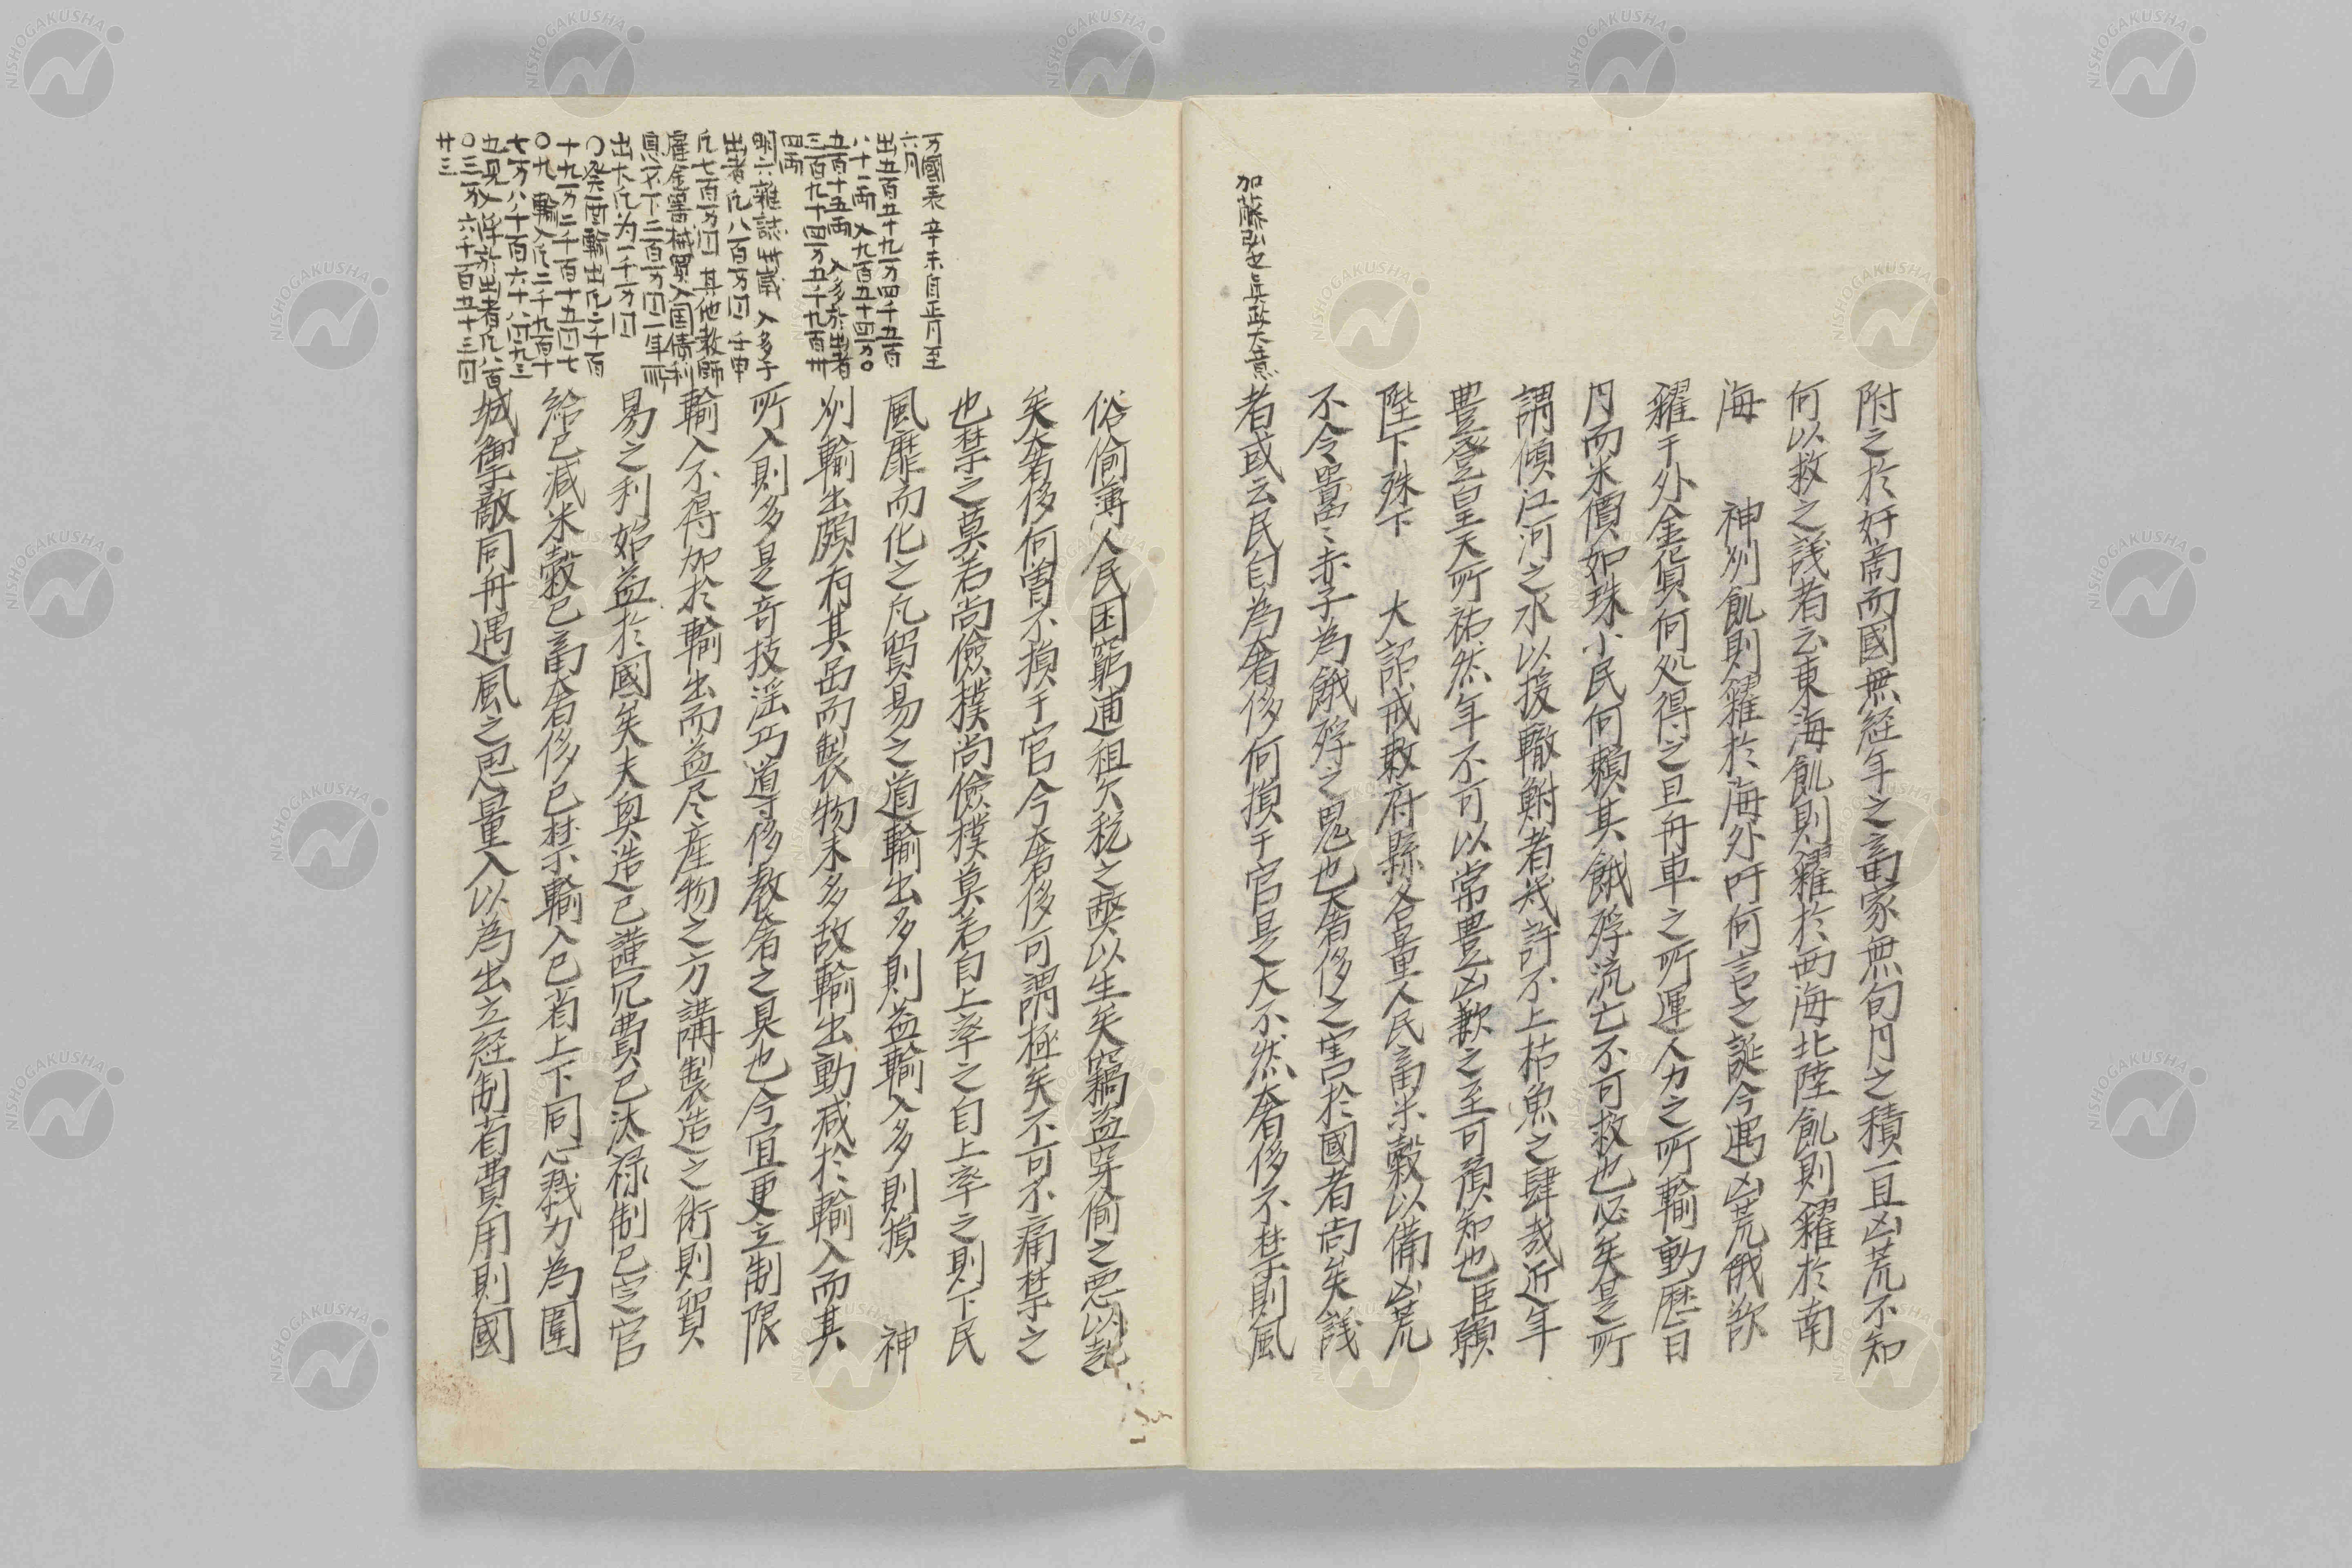 附之於奸商而國無経年之畜家無旬月之積一旦凶荒不知
何以救之議者云東海飢則糴於西海北陸飢則糴於南
海　神州飢則糴於海外吁何言之誕今遇凶荒俄欲
糴于外金貨何処得之且舟車之所運人力之所輸動歴日
月而米價如珠小民何頼其餓殍流亡不可救也必矣是所
謂傾江河之水以援轍鮒者幾許不上枯魚之肆哉近年
豊登皇天所祐然年不可以常豊凶歉之至可預知也臣願
陛下殊下　大詔戒敕府縣各量人民畜米穀以備凶荒
不令嵓々赤子為餓殍之鬼也奢侈之害於國者尚矣議
加藤弘之兵政大意
者或云民自為奢侈何損于官是大不然奢侈不禁則風
俗偷薄人民困窮逋租欠税之弊以生矣竊盗穿偷之悪以起
矣奢侈何曽不損于官今奢侈可謂極矣不可不痛禁之
也禁之莫若尚儉樸尚儉樸莫若自上率之自上率之則下民
風靡而化之凡貿易之道輸出多則益輸入多則損　神
州輸出頗有其品而製物未多故輸出動減於輸入而其
所入則多是奇技淫巧導侈教奢之具也今宜更立制限
輸入不得加於輸出而益尽産物之方講製造之術則貿
易之利始益於國矣夫與造已謹冗費已汰禄制已定官
給已減米穀已畜奢侈已禁輸入已省上下同心戮力為圍
城御敵同舟遇風之思量入以為出立経制省費用則國
万國表　辛未自正月至
六月
出五百五十九万四千五百
八十二両　入九百五十四万〇
五百十五両　入多於出者
三百九十四万五千九百卅
四両
明六雜誌　此歳　入多于
出者凡八百万円　壬申
凡七百万円　其他教師
雇金器械買入国債利
息不下二百万円一年所
出大凡为一千万円
〇癸酉輸出凡二千百
十九万二千百十五円七
〇九　輸入凡二千九百十
七万八千百六十八円九三
五見入浮於出者凡八百
〇三万六千百五十三円
廿三